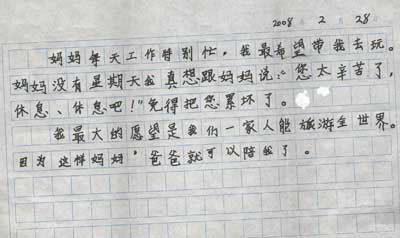 2008 2 28
妈妈每天工作特别忙。我最希望带我去玩。
妈妈没有星期天我真想跟妈妈说:“您太辛苦了,
休息、休息吧!”免得把您累坏了。
我最大的愿望是我们一家人能旅游全世界。
因为这样妈妈,爸爸就可以陪我了。